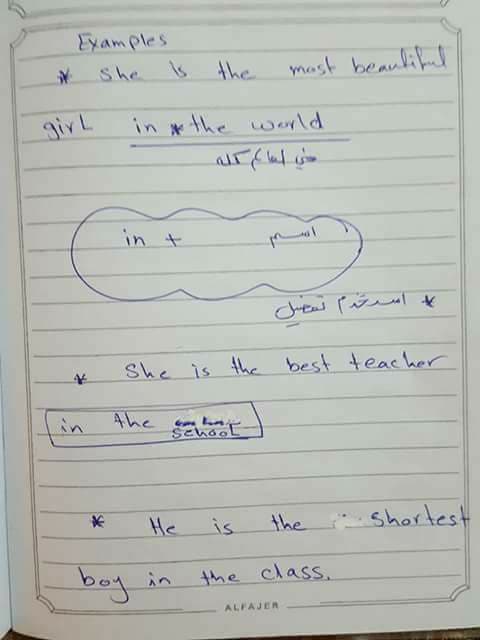 Examples
* She is the most beautiful
girl in the world
في العالم كله
in + اسم
* استخدم تفضيل
* She is the best teacher
in the school
* He is the shortest
boy in the class.
ALFAJER